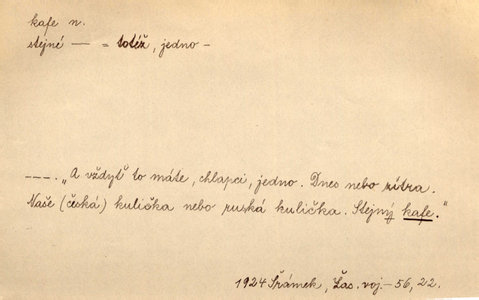 kafe n.
stejné — = totéž, jedno –
---. „A vždyť to máte, chlapci, jedno. Dnes nebo zítra.
Naše (česká) kulička nebo ruská kulička. Stejný kafe."
1924 Šrámek, Žas. voj. – 56, 22.